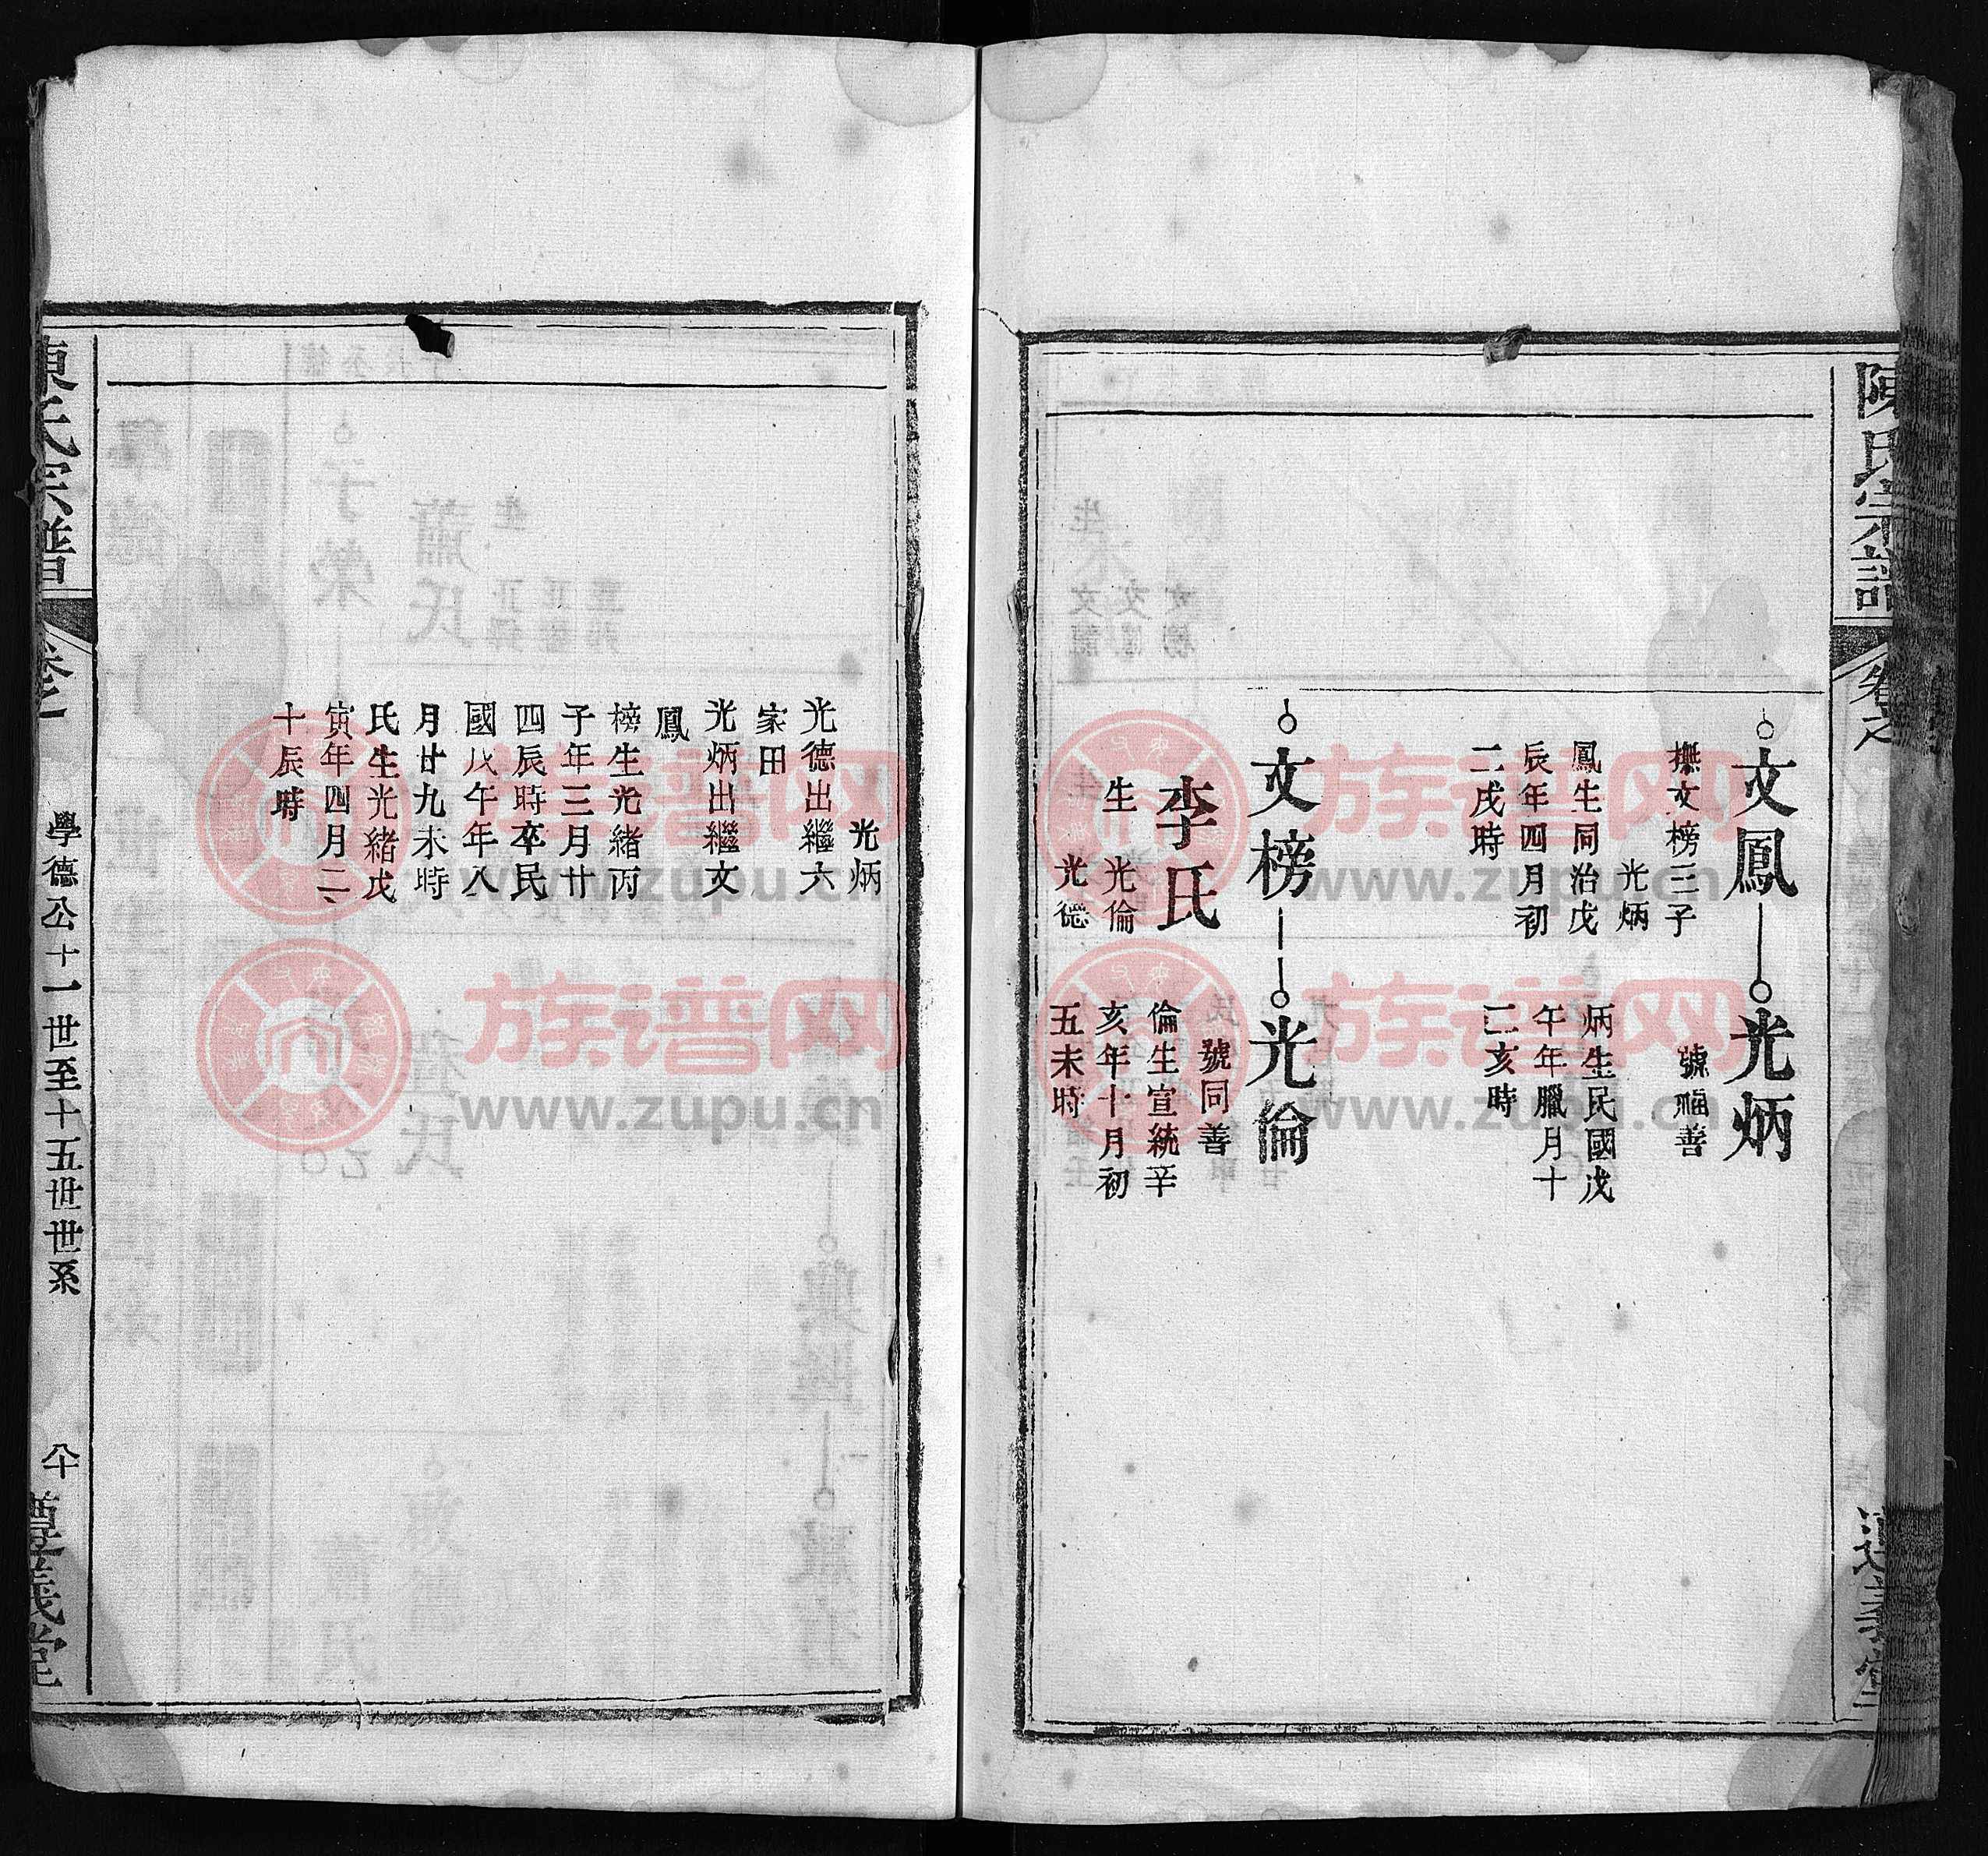 陳氏宗譜
文鳳
撫文榜三子
光炳
鳳生同治戊
辰年四月初
二戌時
光炳
號福善
炳生民國戊
午年臘月十
二亥時
文榜
李氏
生 光倫
光德
光倫
號同善
倫生宣統辛
亥年十月初
五未時
光炳
光德出繼六
家田
光炳出繼文
鳳
榜生光緒丙
子年三月廿
四辰時卒民
國戊午年八
月廿九未時
氏生光緒戊
寅年四月二
十辰時
陳氏宗譜
學德公十一世至十五世世系
尊義堂
族谱网
www.zupu.cn
族谱网
www.zupu.cn
族谱网
www.zupu.cn
族谱网
www.zupu.cn